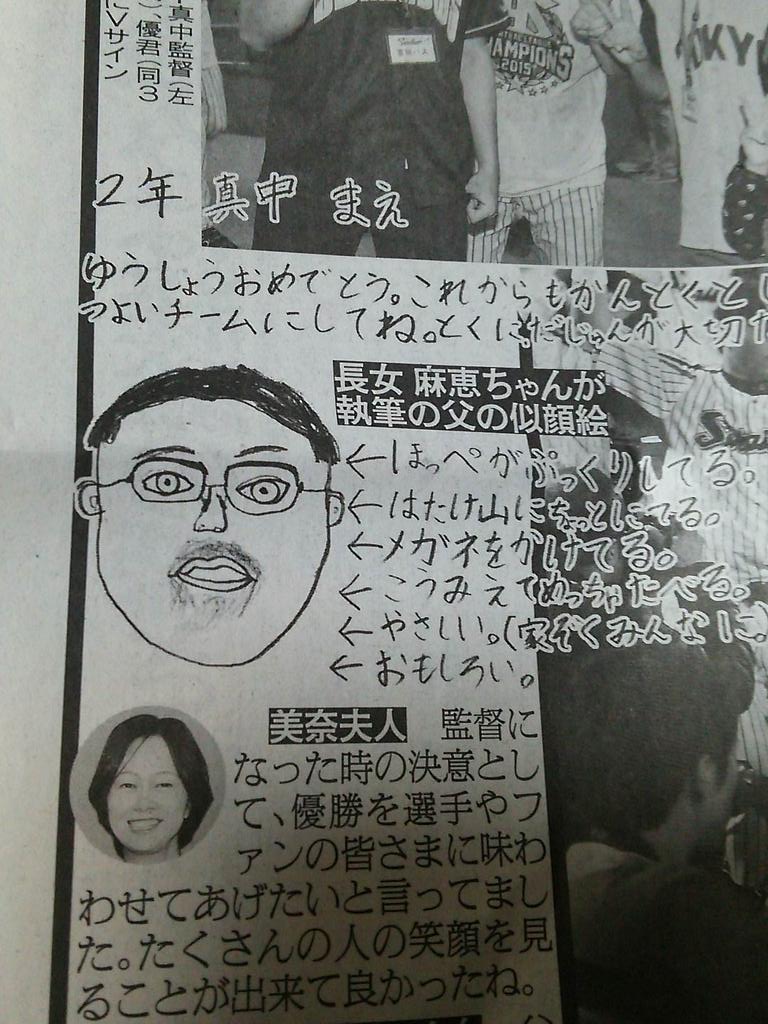 真中監督(左
)、優君(同3
にVサイン
CHAMPIONS
2015
OKY
2年 真中 まえ
ゆうしょうおめでとう。これからもかんとくとし
つよいチームにしてね。とくに、だじゅんが大切だ
長女 麻恵ちゃんが
執筆の父の似顔絵
←ほっぺがぷっくりしてる。
←はたけ山にちょっとにてる。
←メガネをかけてる。
←こうみえてめっちゃたべる。
←やさしい。(家ぞくみんなに。
←おもしろい。
美奈夫人 監督に
なった時の決意とし
て、優勝を選手やフ
ァンの皆さまに味わ
わせてあげたいと言ってまし
た。たくさんの人の笑顔を見
ることが出来て良かったね。